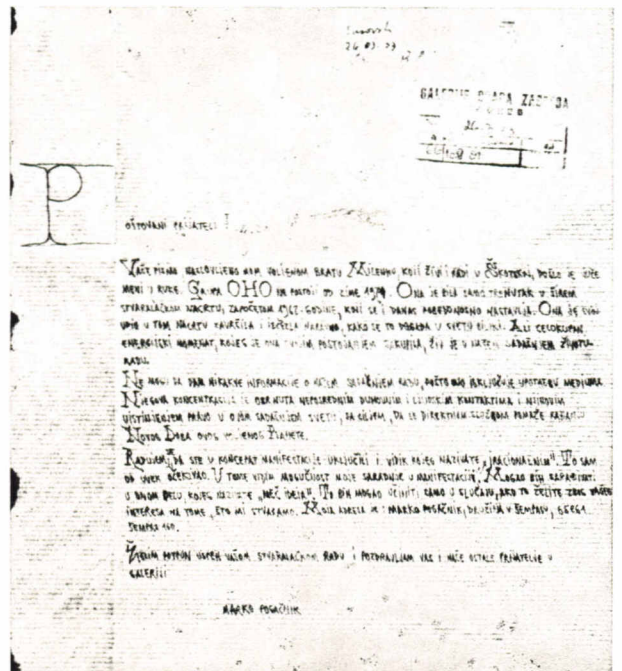 24.03.73
GALERIJE GRADA ZAGREBA
POŠTOVANI PRIJATELJI!
VAŠE PISMO NASLOVLJENO MOM VOLJENOM BRATU MILENKU, KOJI ŽIVI I RADI U ŠKOTSKOJ, DOŠLO JE
MENI U RUKE. GRUPA OHO NE POSTOJI OD ZIME 1970. ONA JE BILA SAMO TRENUTAK U ŠIREM
STVARALAČKOM NACRTU, ZAPOČETOM GODINE, KOJI SE I DANAS NASTAVLJA. ONA JE SVOJ
UDIO U TOM NACRTU ZAVRŠILA I KAKO SE TO DOGAĐA U SVETU ALI CELOKUPAN
ENERGIJSKI MOMENAT, KOJEG JE ONA SVOJIM POSTOJANJEM ŽIV JE U NAŠEM SADAŠNJEM ŽIVOTU
RADU.
NE MOGU DA DAM NIKAKVE INFORMACIJE O NAŠEM SADAŠNJEM RADU, POŠTO ONO ISKLJUČUJE UPOTREBU MEDIJUMA.
NJEGOVA KONCENTRACIJA JE OBRNUTA NEPOSREDNIM DUHOVNIM I KONTAKTIMA I NJIHOVIM
PRAVO U OVIM SADAŠNJEM SVETU, SA CILJEM, DA SE DIREKTNIM POMAŽE RAĐANJU
NOVOG DOBA OVOG VOLJENOG PLANETE.
RADUJEM DA STE U KONCEPAT MANIFESTACIJE UKLJUČILI I VIDIK KOJEG NAZIVATE „IRACIONALNIM". TO SAM
OD UVEK OČEKIVAO. U TOME VIDIM MOGUĆNOST MOJE SARADNJE U MANIFESTACIJI. MOGAO BIH
U ONOM DELU, KOJEG NAZIVATE „MEČ IDEJA". TO BIH MOGAO UČINITI SAMO U SLUČAJU, AKO TO ŽELITE ZBOG VAŠEG
INTERESA NA TOME, ŠTO MI STVARAMO. MOJA ADRESA JE: MARKO POGAČNIK, DRUŽINA V ŠEMPASU, 65261
ŠEMPAS 160.
ŽELIM POTPUN USPEH VAŠOM STVARALAČKOM RADU I POZDRAVLJAM VAS I NAŠE OSTALE PRIJATELJE U
GALERIJI
MARKO POGAČNIK